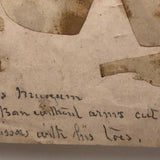 s Museum
Man without arms cut
issors with his toes.